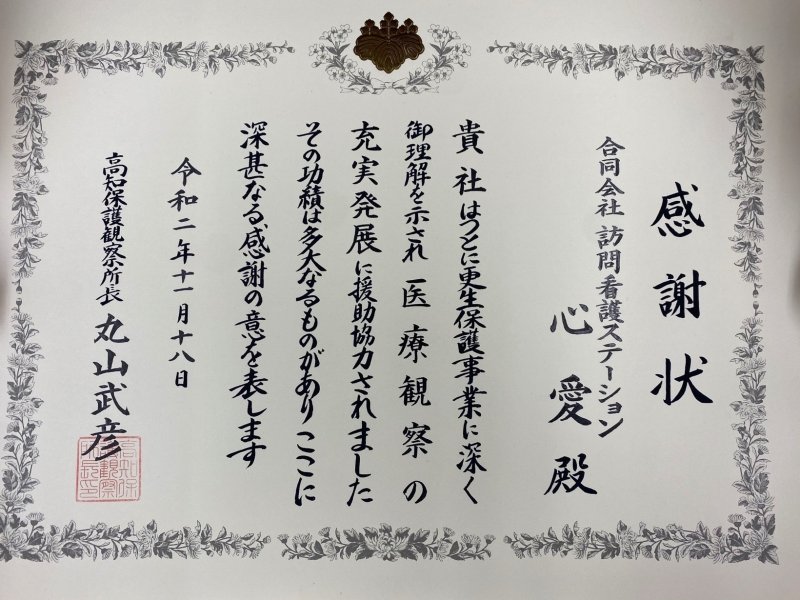 感謝状
合同会社 訪問看護ステーション
心愛殿
貴社はつとに更生保護事業に深く
御理解を示され医療観察の
充実発展に援助協力されました
その功績は多大なるものがありここに
深甚なる感謝の意を表します
令和二年十一月十八日
高知保護観察所長 丸山武彦